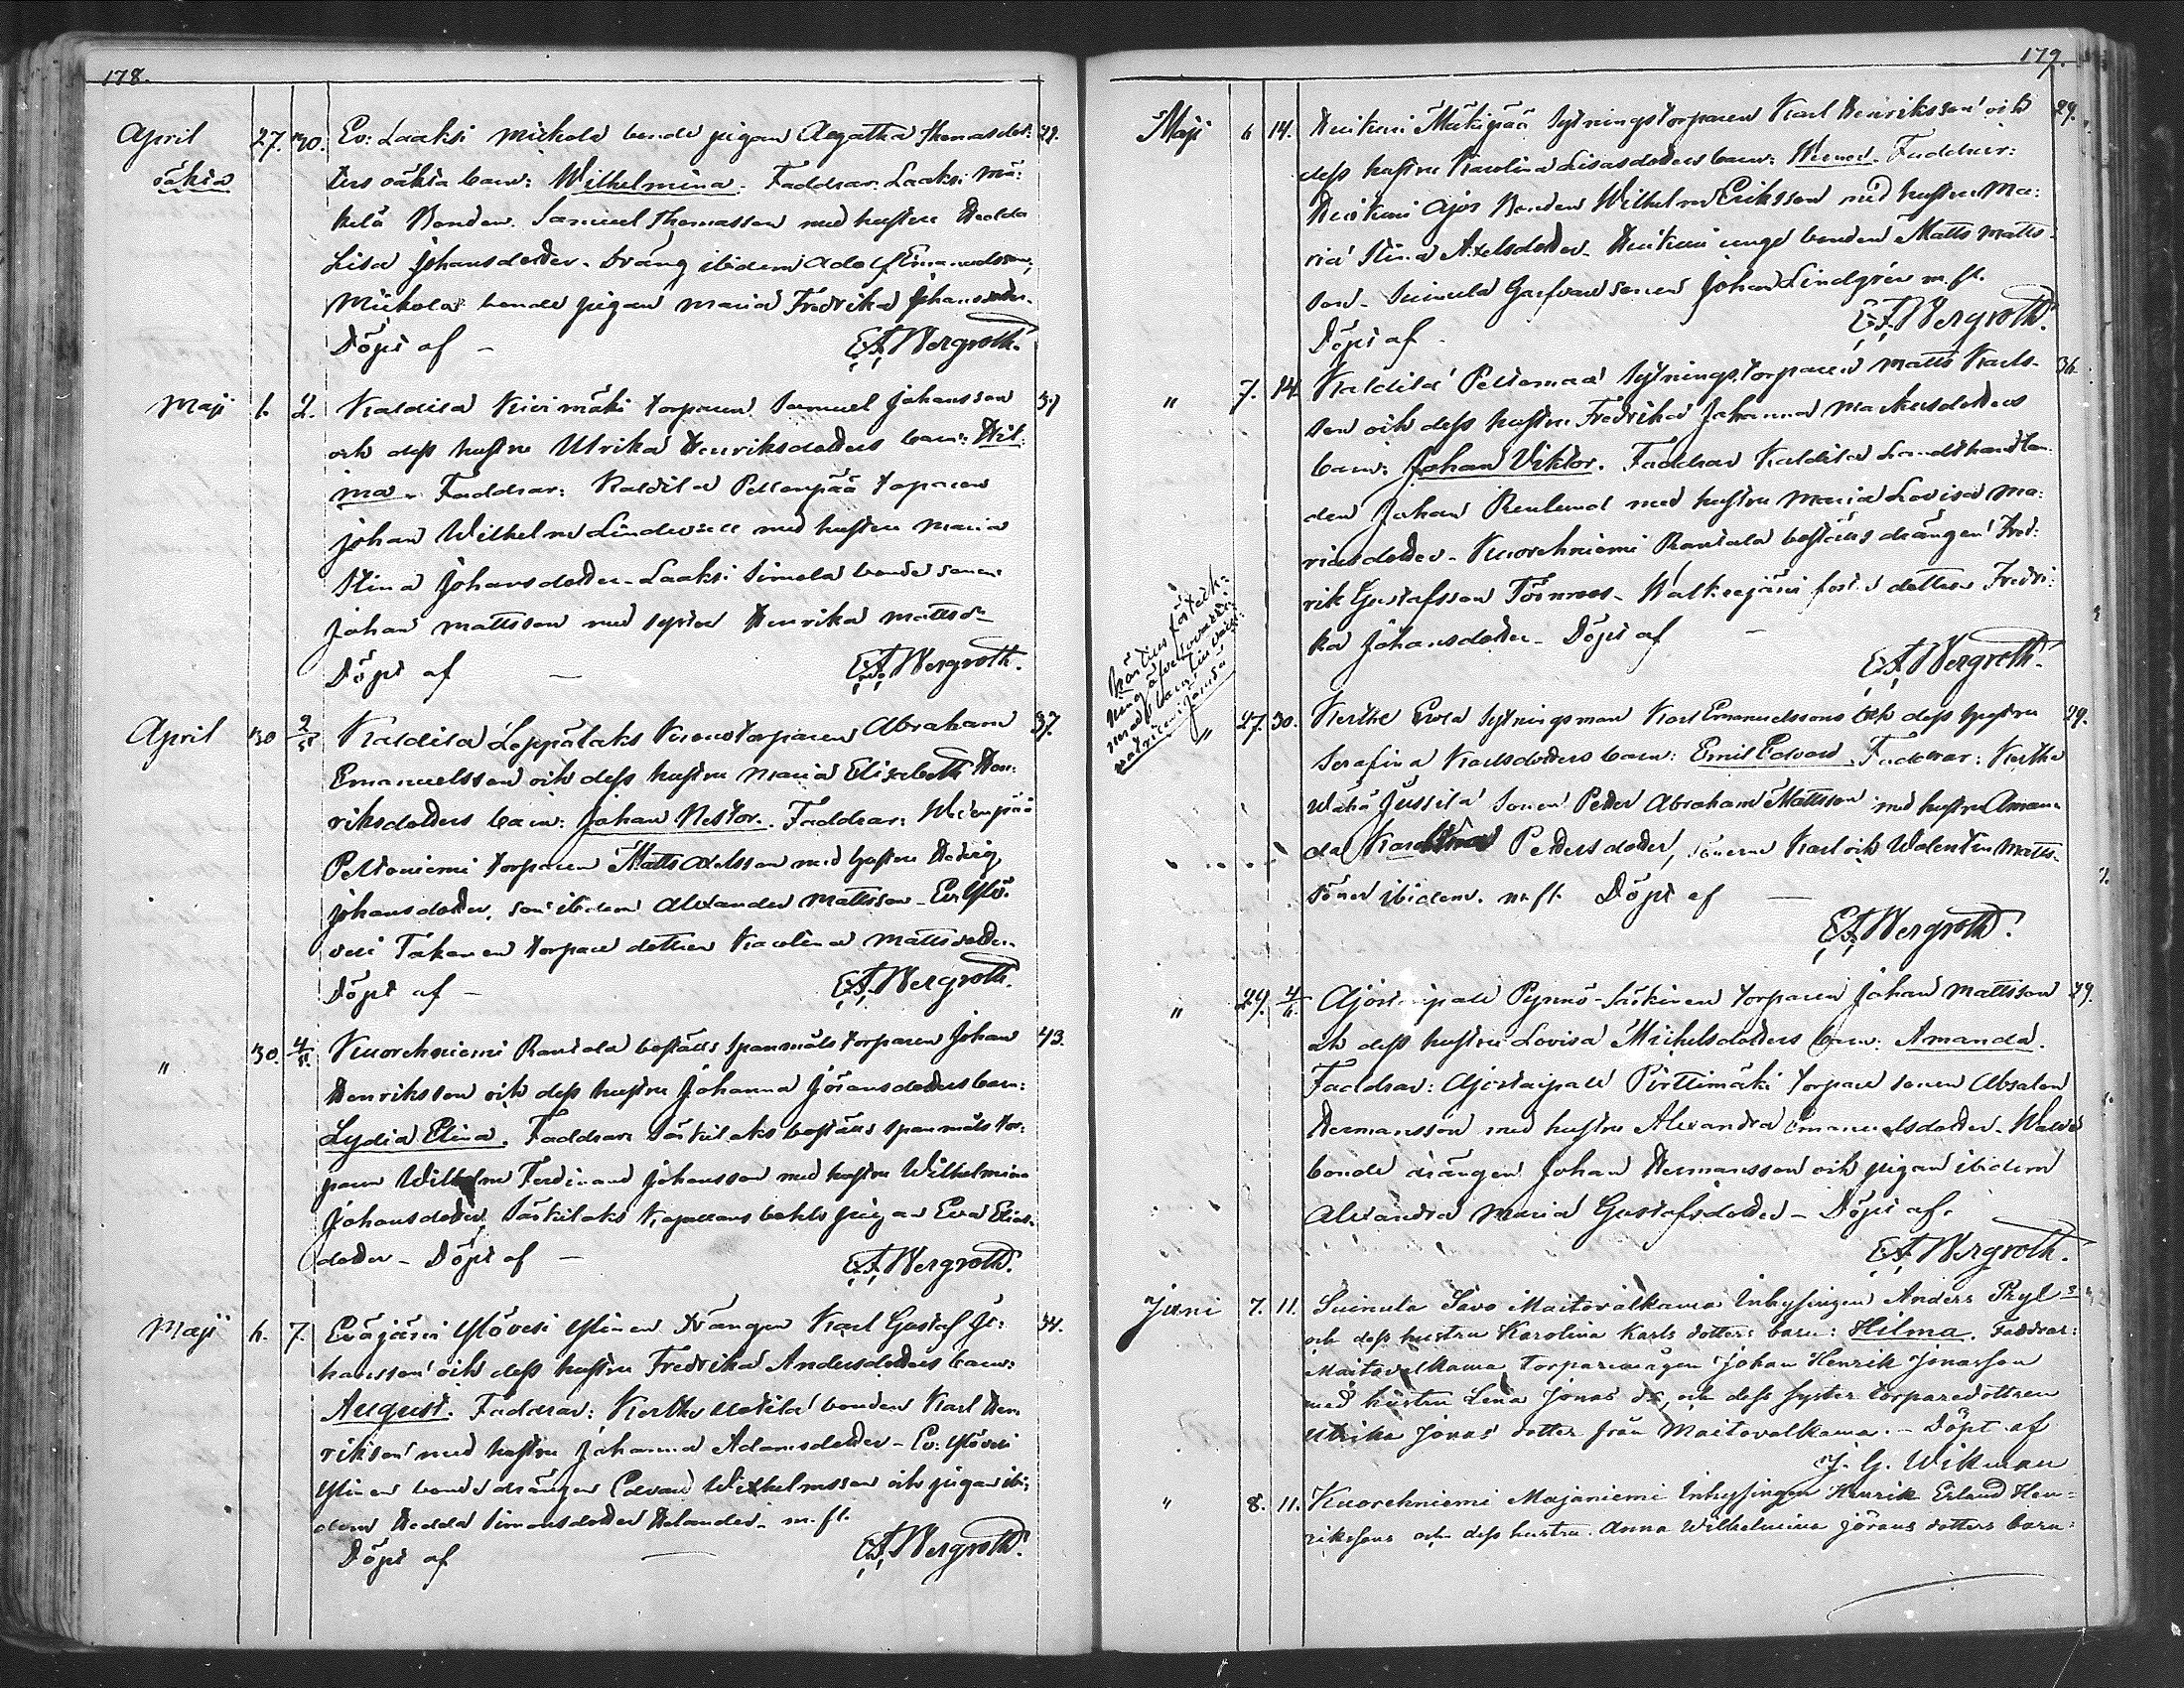 178.
April 27. 30. Ev: Laaksi Mickola bonde pigan Agatha Thomasdot: 22.
oäkta ters oäkta barn: Wilhelmina. Faddrar: Laaksi Mä:
kelä Bonden Samuel Thomasson med hustru Hedda
Lisa Johansdotter. dräng ibidem Adolf Emanuelsson,
Mickola bonde pigan Maria Fredrika Johansdotter.
Döpt af – E.A. Bergroth.
Maji 1. 2. Kaldila Kivimäki torparen Samuel Johansson 37
och dess hustru Ulrika Henriksdotters barn: Hil:
ma. Faddrar: Kaldila Peltonpää torparen
Johan Wilhelm med hustru Maria
Stina Johansdotter – Laaksi Simola bonde sonen
Johan Mattsson med syster Henrika Mattsdr
Döpt af – E.A. Bergroth.
April 30 2/5 Kaldila Leppälaks torparen Abraham 37.
Emanuelsson och dess hustru Maria Elisabeth Hen:
riksdotters barn: Johan Nestor. Faddrar:
Peltoniemi torparen Matts Adelsson med hustru Hedvig
Johansdotter, son ibidem Alexander Mattsson – Ev: Ylö:
vesi Takanen torpare dottren Karolina Mattsdotter.
Döpt af – E.A. Bergroth.
" 30. 4/5. Kuorehniemi Rantala boställs spanmåls torparen Johan 43.
Henriksson och dess hustru Johanna Jöransdotters barn:
Lydia Elina. Faddrar: Särkilaks boställs spanmåls tor:
paren Wilhelm Ferdinand Johansson med hustru Wilhelmina
Johansdotter Särkilaks Kapellans bohls pigan Eva Elias:
dotter – Döpt af – E.A. Bergroth.
Maji 6. 7. Eväjärvi Ylövesi Ylinen Drängen Karl Gustaf Jo: 34.
hansson och dess hustru Fredrika Andersdotters barn:
August. Faddrar: Kertke Uotila bonden Karl Hen
riksson med hustru Johanna Adamsdotter – Ev: Ylövesi
Ylinen bonde drängen Edvard Wilhelmsson och pigan ibi:
dem Hedda Simonsdotter Helander. m.fl.
Döpt af – E.A. Bergroth.
179.
Maji 6 14. Hiukuri Mäkipää Sytningstorparen Karl Henriksson och 29.
dess hustru Karolina Lisasdotters barn: Werner. Faddrar:
Hiukuri Ajos Bonden Wilhelm Eriksson med hustru Ma:
ria Stina Axelsdotter. Hiukuri unge bonden Matts Matts:
son. Suinula Garfvare sonen Johan Lindgrén m.fl.
Döpt af – E.A. Bergroth.
" 7. 14. Kaldila Peltomaa Sytningstorparen Matts Karls: 36.
son och dess hustru Fredrika Johanna Markusdotters
barn: Johan Viktor. Faddrar Kaldila Landthandlan:
den Johan Renlund med hustru Maria Lovisa Ma:
riasdotter – Kuorehniemi Rantala boställs drängen Fred:
rik Gustafsson Törnroos – Walkeejärvi dottren Fredri:
ka Johansdotter – Döpt af –
E.A. Bergroth.
" 27. 30. Kertke Erola Sytningsman Karl Emanuelssons och dess hustru 29.
Serafina Karlsdotters barn: Emil Edvard. Faddrar: Kertke
Wähä Jussila sonen Peder Abraham Mattsson med hustru Aman
da Karolina Pettersdotter, sönerne Karl och Walentin Matts:
söner ibidem. m.fl. Döpt af –
E.A. Bergroth.
" 29. 4/6. Ajostaipale Pynnö-Särkinen torparen Johan Mattsson 29.
och dess hustru Lovisa Mickelsdotters barn: Amanda.
Faddrar: Ajostaipale Pirttimäki torpare sonen Absalon
Hermansson med hustru Alexandra Emanuelsdotter.
bonde drängen Johan Hermansson och pigan ibidem
Alexandra Maria Gustafsdotter – Döpt af.
E.A. Bergroth.
Juni 7. 11. Suinula Savo Maitovalkama Inhysingen Anders
och dess hustru Karolina Karls dotters barn: Hilma. Faddrar:
Maitovalkama torparemågen Johan Henrik Jonasson
med hustru Lena Jonas dr, och dess syster torparedottren
Ulrika Jonas dotter från Maitovalkama. – Döpt af
J. G. Wikman
" 8. 11. Kuorehniemi Majaniemi Inhysingen Henrik Erland Hen=
rikssons och dess hustru Anna Wilhelmina Jörans dotters barn: